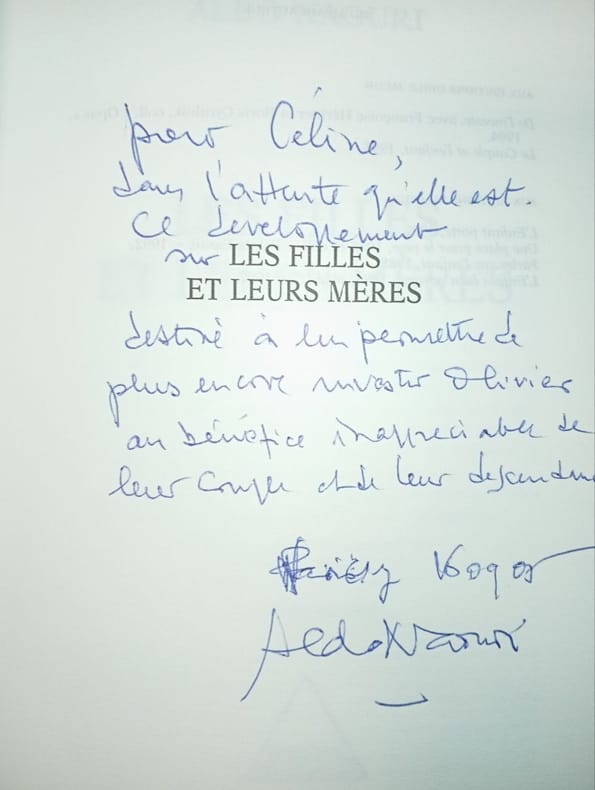 pour Céline,
dans l'attente qu'elle est.
ce developpement
sur LES FILLES
ET LEURS MÈRES
destiné à lui permettre de
plus encore investir Olivier
au bénéfice inappreciable de
leur couple et de leur descendance
Aldo Naouri